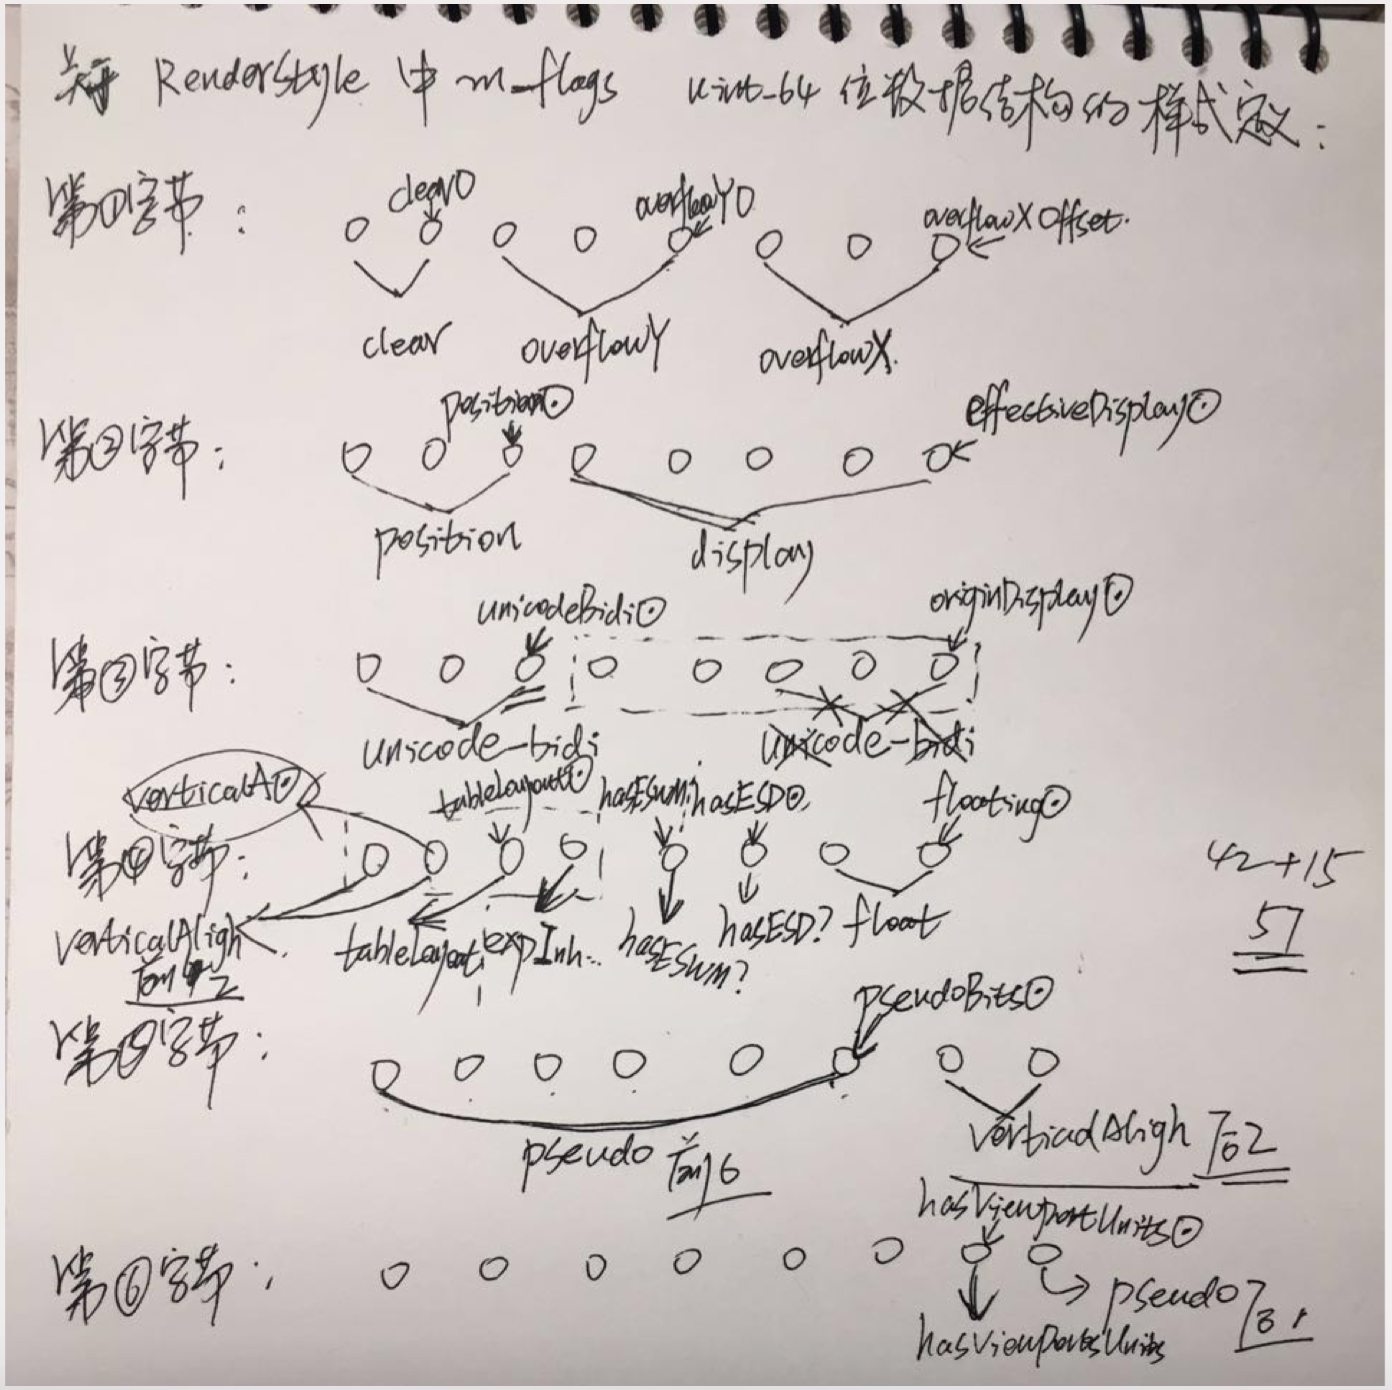 关于 RenderStyle 中 m_flags uint_64 位数据结构的样式定义:
第①字节: clear0 overflowY0 overflowX Offset.
clear overflowY overflowX.
第②字节: position⊙ effectiveDisplay⊙
position display
第③字节: unicodeBidi⊙ originDisplay⊙
unicode-bidi unicode-bidi
verticalA⊙ tableLayout⊙ hasESWM? hasESD⊙. floating⊙
第④字节:
verticalAligh 前2 tableLayout expInh... hasESWM? hasESD? float
42+15
57
第⑤字节: pseudoBits⊙
pseudo 前6 verticalAligh 后2
第⑥字节: hasViewportUnits⊙
pseudo 后1
hasViewPortsUnits